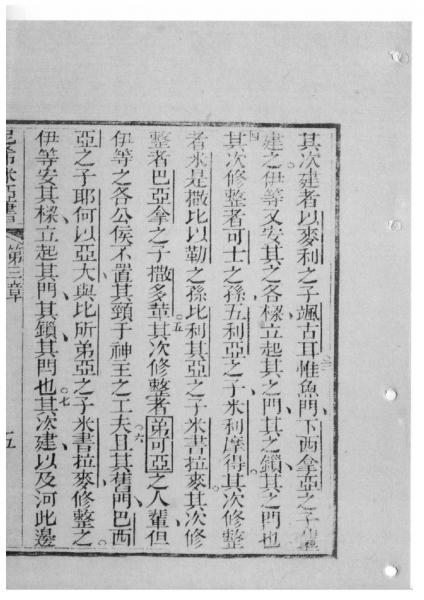 其次建者以麥利之子颯古耳惟魚門下西拿亞之子輩
建之伊等又安其之各樑立起其之門其之鎖其之閂也
四其次修整者可士之孫五利亞之子米利摩得其次修整
者米是撒比以勒之孫比利其亞之子米書拉麥其次修
整者巴亞拿之子撒多革五其次修整者弟可亞之人輩但
伊等之各公侯不置其頸于神王之工夫六且其舊門巴西
亞之子耶何以亞大與比所弟亞之子米書拉麥修整之
伊等安其樑立起其門其鎖其閂也七其次建以及河此邊
尼希米亞書 第三章 五